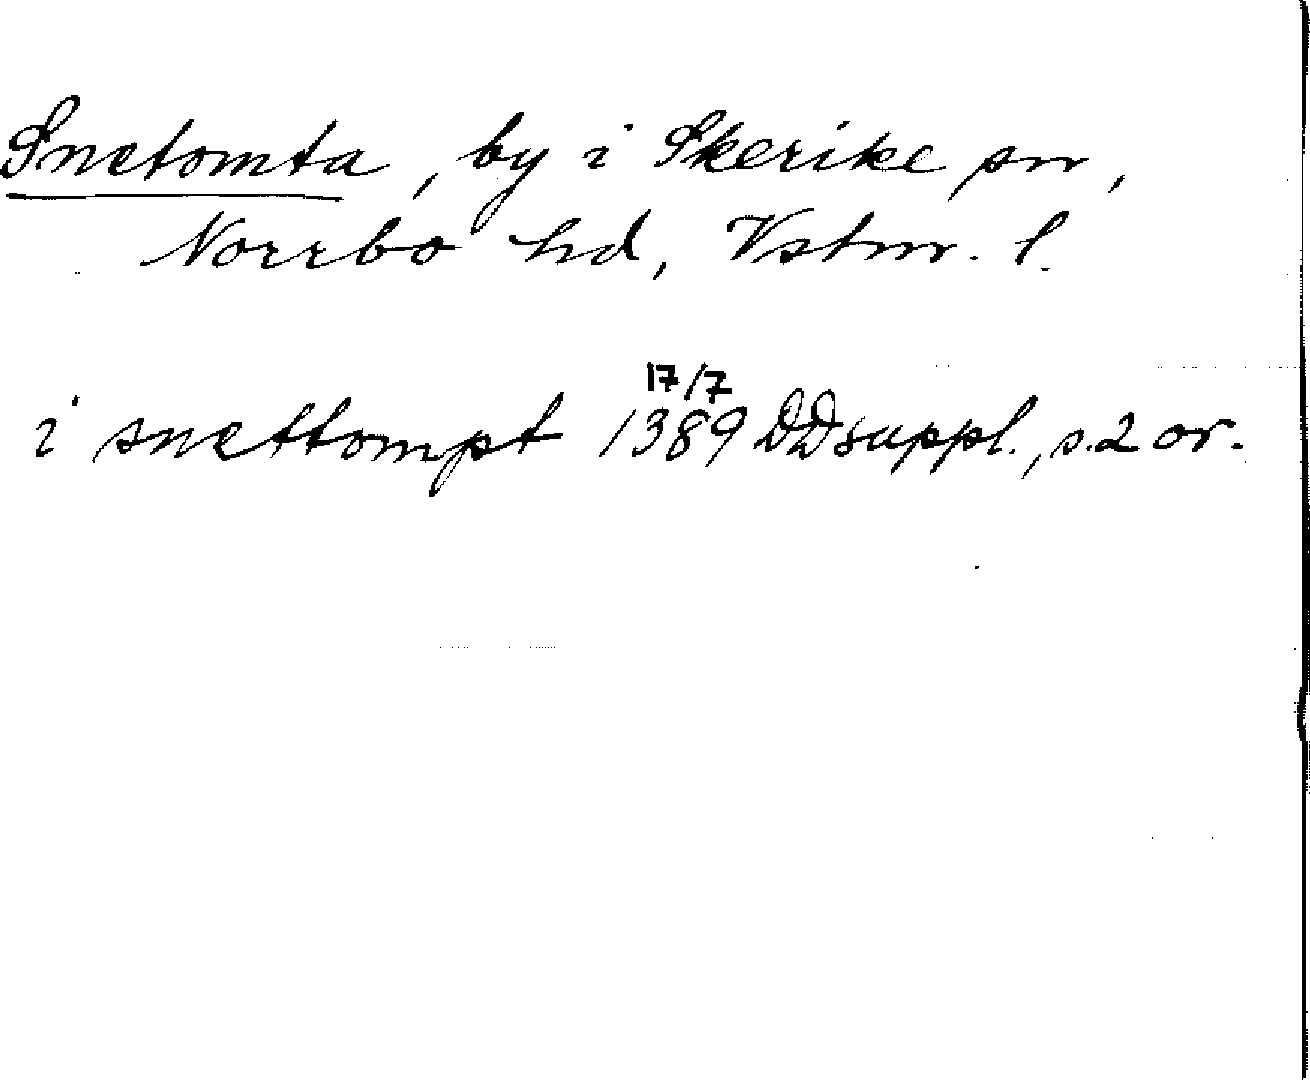 Snetomta, by i Skerike sn,
Norrbo hd, Vstm. l.
17/7
i snettompt 1389 DDsuppl., s. 2 or.